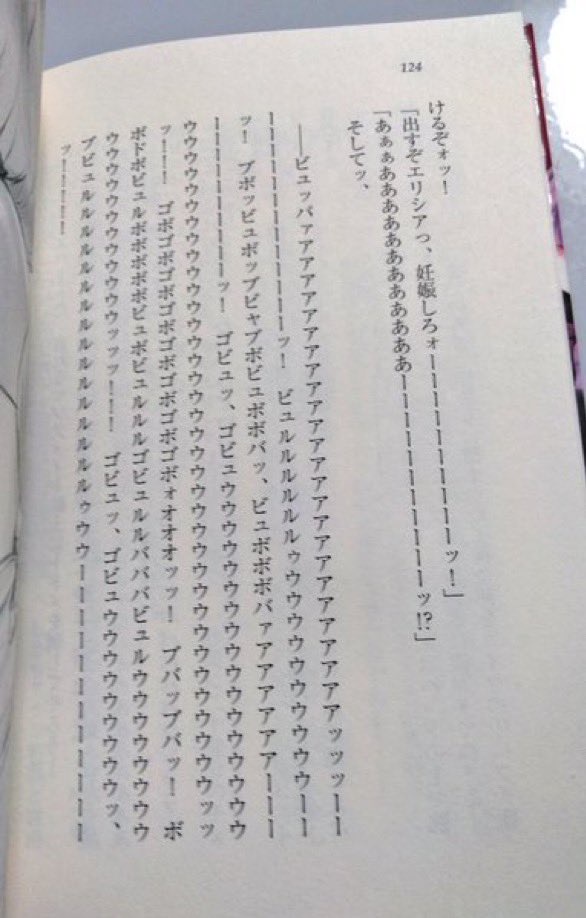 124
けるぞォッ！
「出すぞエリシアっ、妊娠しろォーーーーーーーーーーッ！」
「あぁぁあああああああああああああーーーーーーーーーーーッ!?」
そしてッ、
――ビュッパァアアアアアアアアアアアアアアアアアアアアアアアアッッッーー
ーーーーーーーーーーーーッ！　ビュルルルルルルゥウウウウウウウウウウーー
ッ！　ブボッビュボップビャブボビュボボバッ、ビュボボボバァアアアアアアーーー
ーーーーーーーーーッ！　ゴビュッ、ゴビュウウウウウウウウウウウウウウウウ
ウウウウウウウウウウウウウウウウウウウウウウウウウウウウウウウウウウッッ
ッ！！！　ゴボゴボゴボゴボゴボゴボゴボォオオオオッッ！　ブバップバッ！　ボ
ボドボビュルボボボボボビュボビュルルルゴビュルルバババビュルウウウウウウウウ
ウウウウウウウウウウウウウッッッ！！！　ゴビュッ、ゴビュウウウウウウウウッ、
ブビュルルルルルルルルルルルルルルルルルルルゥウウーーーーーーーーーーーー
ッーーーーー